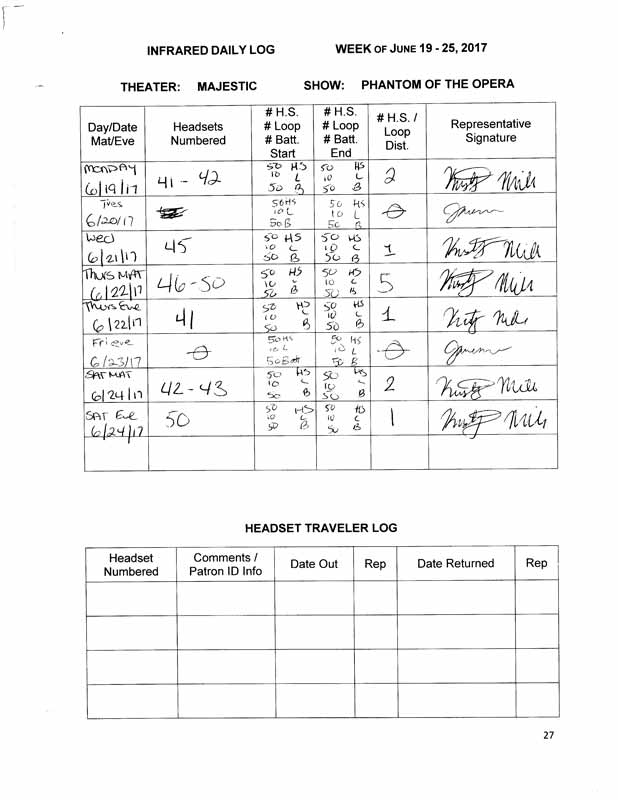 INFRARED DAILY LOG WEEK OF JUNE 19 - 25, 2017
THEATER: MAJESTIC SHOW: PHANTOM OF THE OPERA
Day/Date
Mat/Eve
Headsets
Numbered
# H.S.
# Loop
# Batt.
Start
# H.S.
# Loop
# Batt.
End
# H.S. /
Loop
Dist.
Representative
Signature
MONDAY
6/19/17
41 - 42
50 HS
10 L
50 B
50 HS
10 L
50 B
2
Tues
6/20/17
50HS
10 L
50 B
50 HS
10 L
50 B
Wed
6/21/17
45
50 HS
10 L
50 B
50 HS
10 L
50 B
1
THURS MAT
6/22/17
46-50
50 HS
10 L
50 B
50 HS
10 L
50 B
5
Thurs Eve
6/22/17
41
50 HS
10 L
50 B
50 HS
10 L
50 B
1
Fri eve
6/23/17
50HS
10 L
50Batt
50 HS
10 L
50 B
SAT MAT
6/24/17
42-43
50 HS
10 L
50 B
50 HS
10 L
50 B
2
SAT Eve
6/24/17
50
50 HS
10 L
50 B
50 HS
10 L
50 B
1
HEADSET TRAVELER LOG
Headset
Numbered
Comments /
Patron ID Info
Date Out
Rep
Date Returned
Rep
27